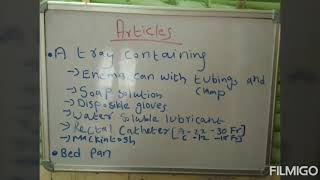 Articles
• A tray containing
→ Enema can with tubings and clamp
→ Soap solution
→ Disposible gloves
→ Water soluble lubricant
→ Rectal Catheter [ - 22 -30 Fr]
- 12 -18 Fr]
→ Mackintosh
• Bed Pan
FILMIGO